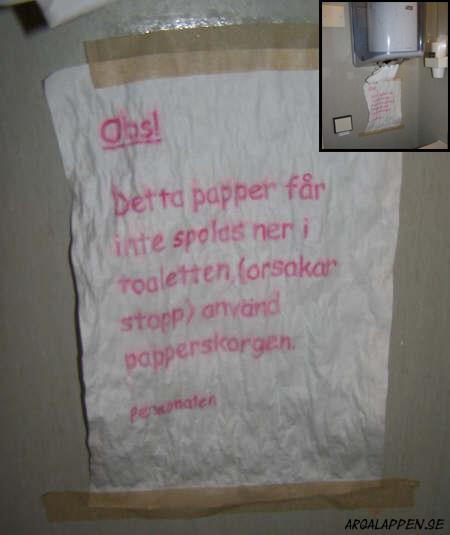 Obs!
Detta papper får
inte spolas ner i
toaletten, (orsakar
stopp) använd
papperskorgen.
personalen
ARGALAPPEN.SE